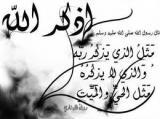 إذكر الله
قال رسول الله صلى الله عليه وسلم
مَثَلُ الذي يَذكُرُ ربَّهُ
وَالذي لا يذكُرُهُ
مَثَلُ الحيِّ والمَيِّتِ